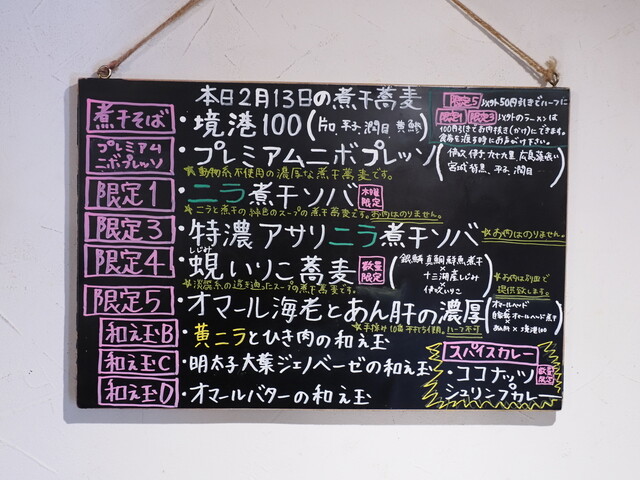 本日2月13日の煮干蕎麦
限定5以外50円引きでハーフに
限定1 限定3以外のラーメンは
100円引きでお肉抜き(かけ)にできます。
食券を渡す時にお声がけ下さい。
煮干そば ・境港100 (片口 平子 潤目 黄鯵)
プレミアムニボプレッソ ・プレミアムニボプレッソ
伊吹 伊予 九十九里 広島
宮城 特黒 平子 潤目
★動物系不使用の濃厚な煮干蕎麦です。
限定1 ・ニラ煮干ソバ 木曜限定
★ニラと煮干の純色のスープの煮干蕎麦です。お肉はのりません。
限定3 ・特濃アサリニラ煮干ソバ ★お肉はのりません。
しじみ
限定4 ・蜆いりこ蕎麦 数量限定
銀鯖 真鯛 鮮魚煮干
×
十三湖産しじみ
×
伊吹いりこ
★お肉は別皿で提供致します。
★淡麗系の透き通ったスープの煮干蕎麦です。
限定5 ・オマール海老とあん肝の濃厚
オマールヘッド
×
自家製オマールヘッド煮干
×
あん肝×境港100
★手揉み10番平打ち使用。ハーフ不可
和え玉B ・黄ニラとひき肉の和え玉
和え玉C ・明太子大葉ジェノベーゼの和え玉
和え玉D ・オマールバターの和え玉
スパイスカレー
・ココナッツ 数量限定
シュリンプカレー